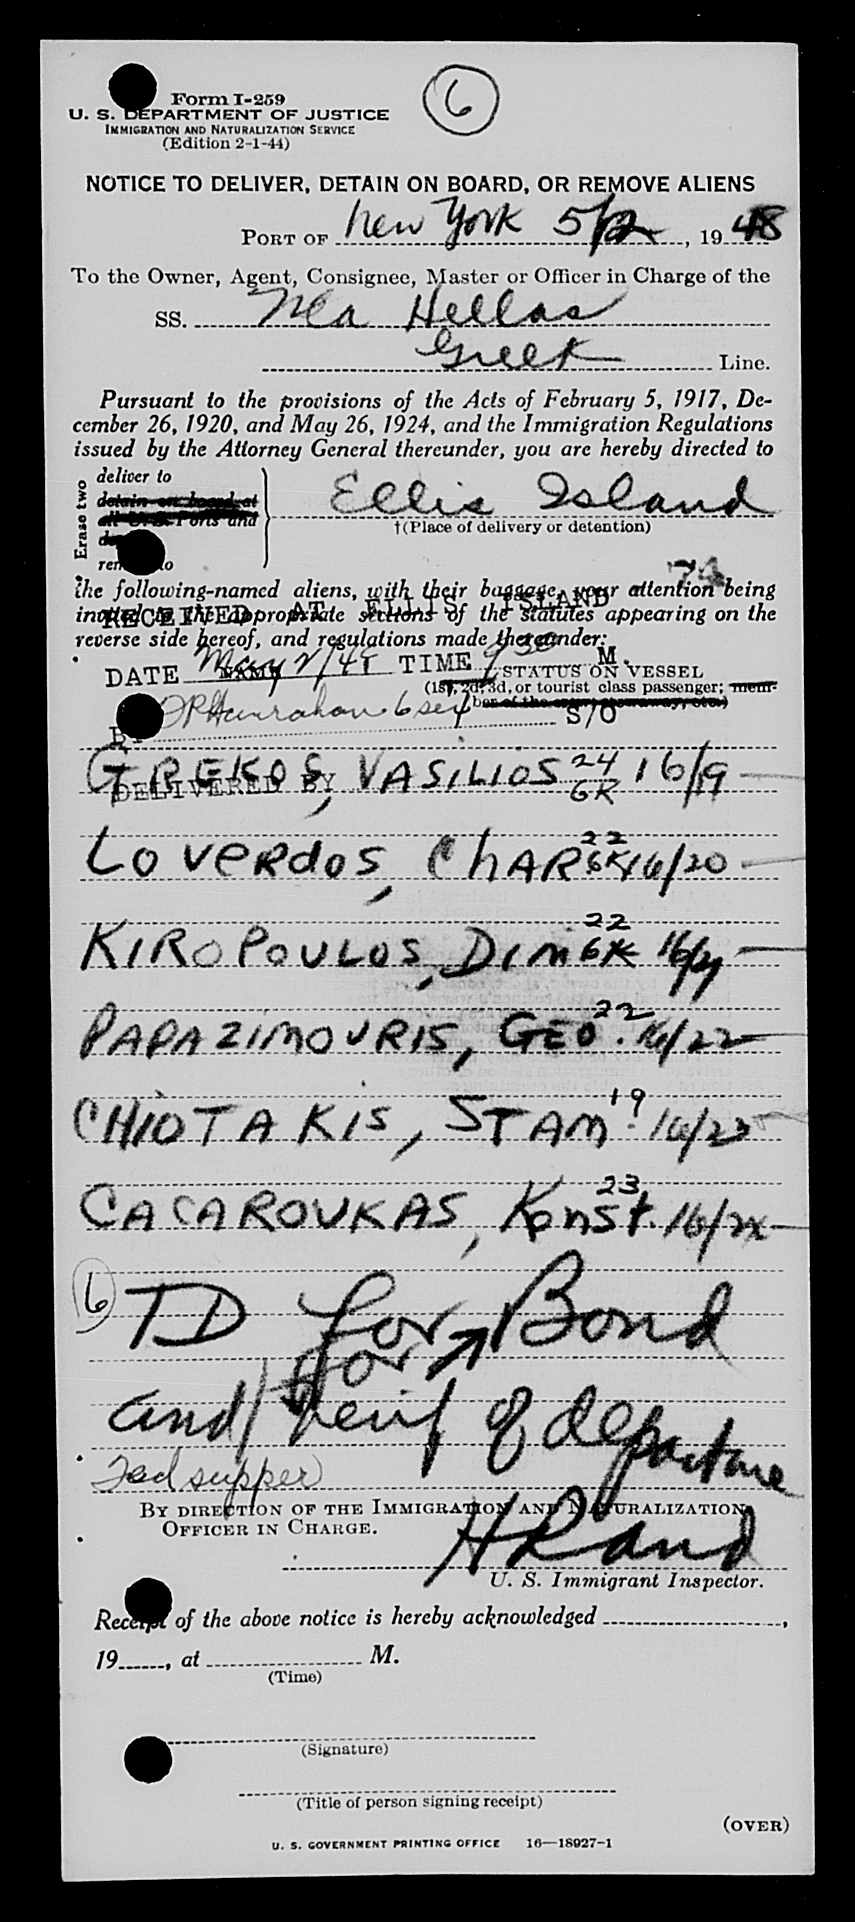 6
Form I-259
U. S. DEPARTMENT OF JUSTICE
IMMIGRATION AND NATURALIZATION SERVICE
(Edition 2-1-44)
NOTICE TO DELIVER, DETAIN ON BOARD, OR REMOVE ALIENS
PORT OF New York 5/2, 1948
To the Owner, Agent, Consignee, Master or Officer in Charge of the
SS. Nea Hellas
Greek Line.
Pursuant to the provisions of the Acts of February 5, 1917, De-
cember 26, 1920, and May 26, 1924, and the Immigration Regulations
issued by the Attorney General thereunder, you are hereby directed to
Erase two
deliver to
detain on board at
all U. S. Ports and
Ellis Island
†(Place of delivery or detention)
the following-named aliens, with their baggage, your attention being
invited to the appropriate sections of the statutes appearing on the
RECEIVED AT ELLIS ISLAND
reverse side hereof, and regulations made thereunder:
DATE May 2/48 TIME 9 30 M.
NAME STATUS ON VESSEL
(1st, 2d, 3d, or tourist class passenger; mem-
ber of the crew, stowaway, etc.)
BY S/O
GREKOS, VASILIOS 24 GR 16/19
DELIVERED BY
LOVERDOS, CHAR 22 GR 16/20
KIROPOULOS, DIM 22 GR 16/21
PAPAZIMOURIS, GEO. 22 16/22
CHIOTAKIS, STAM. 19 16/23
CACAROUKAS, Konst. 23 16/24
6 TD for Bond
for
and verif of departure
Fed supper
BY DIRECTION OF THE IMMIGRATION AND NATURALIZATION
OFFICER IN CHARGE.
H Rand
U. S. Immigrant Inspector.
Receipt of the above notice is hereby acknowledged ,
19 , at M.
(Time)
(Signature)
(Title of person signing receipt)
(OVER)
U. S. GOVERNMENT PRINTING OFFICE 16—18927-1